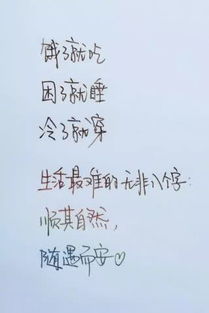 饿了就吃
困了就睡
冷了就穿
生活最难的无非八个字:
顺其自然,
随遇而安♡